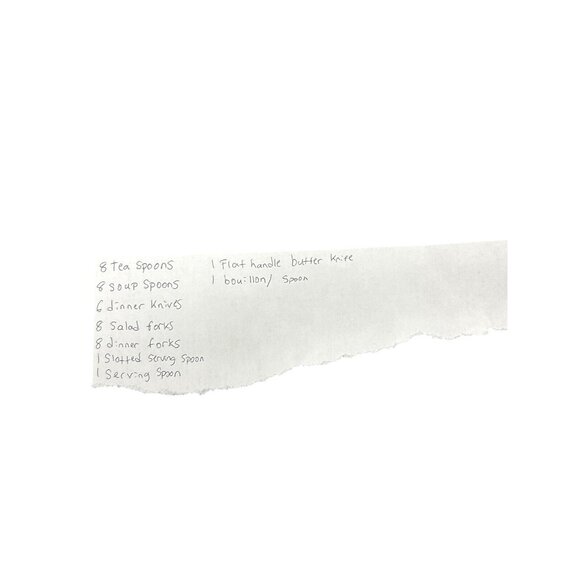 8 Tea Spoons
8 Soup Spoons
6 dinner Knives
8 Salad forks
8 dinner forks
1 Slotted Serving Spoon
1 Serving Spoon
1 Flat handle butter Knife
1 bouillon/ Spoon